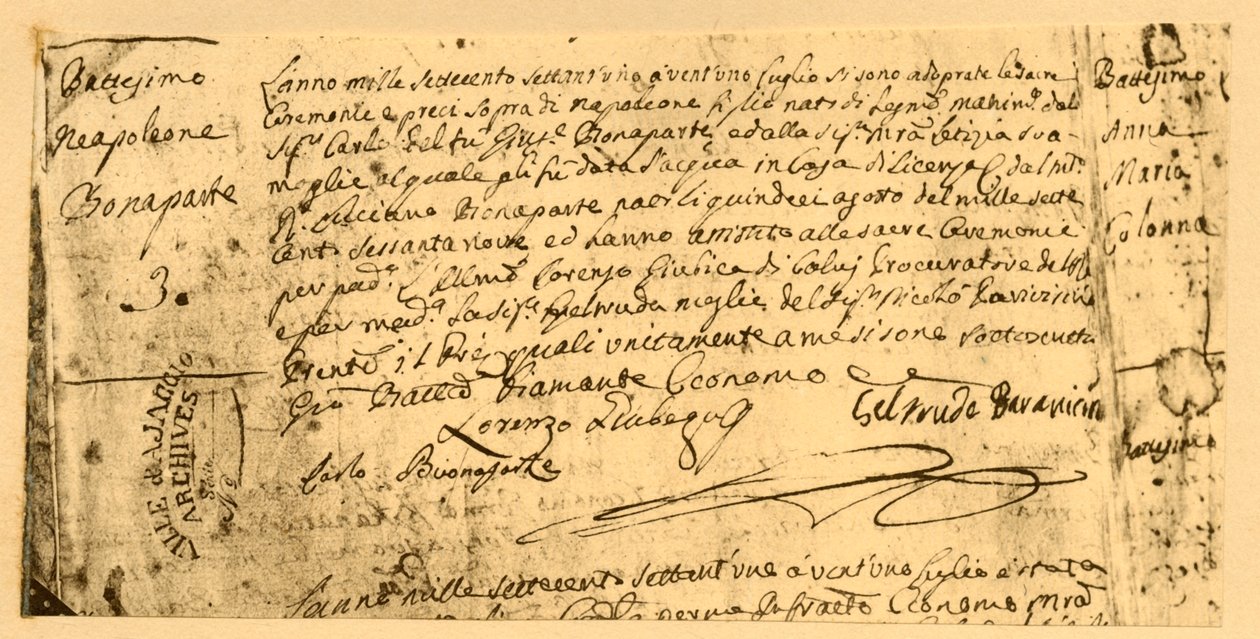 Battesimo
Neapoleone
Bonaparte
3.
L'anno mille settecento settant'uno a vent'uno luglio si sono adoprate le sacre
Ceremonie e preci sopra di Napoleone figlio nato di legmo. matrimo. dal
Sigr. Carlo del fu Giuse. Bonaparte ed alla Sigra. Mra. Letizia sua
moglie al quale gli fu data l'acqua in Casa di licenza dal
Luciano Bonaparte nato li quindeci agosto del mille sette
cento sessanta nove ed hanno assistito alle sacre Ceremonie
per pado. l'Illmo. Lorenzo Giubica di Calvi Procuratore del
e per mada. la Siga. Geltruda moglie del Sigr. Nicolò Paravisini
Presente il Pre. quali unitamente a me si sono sottoscritti
Gio Battta. Diamante Economo
Lorenzo Giubega Geltrude Paravicini
Carlo Buonaparte
VILLE d'AJACCIO
ARCHIVES
Série
No
L'anno mille settecento settant'uno a vent'uno luglio è stata
per me Infratto Economo Mra
Battesimo
Anna
Maria
Colonna
Battesimo